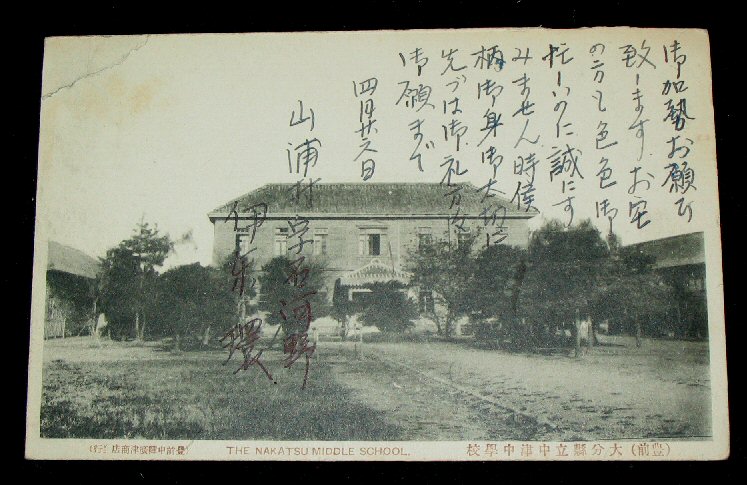 御加勢お願ひ
致します お宅
の方も色色御
忙しいのに誠にす
みません 時候
柄御身御大切に
先づは御礼方々
御願まで
四月廿六日
山浦村字西河野
伊東 環
THE NAKATSU MIDDLE SCHOOL.
(豊前) 大分縣立中津中學校